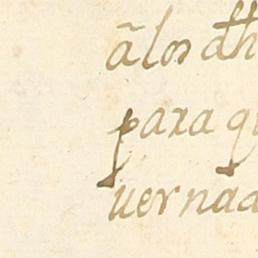 ã los dh
para q
uernad